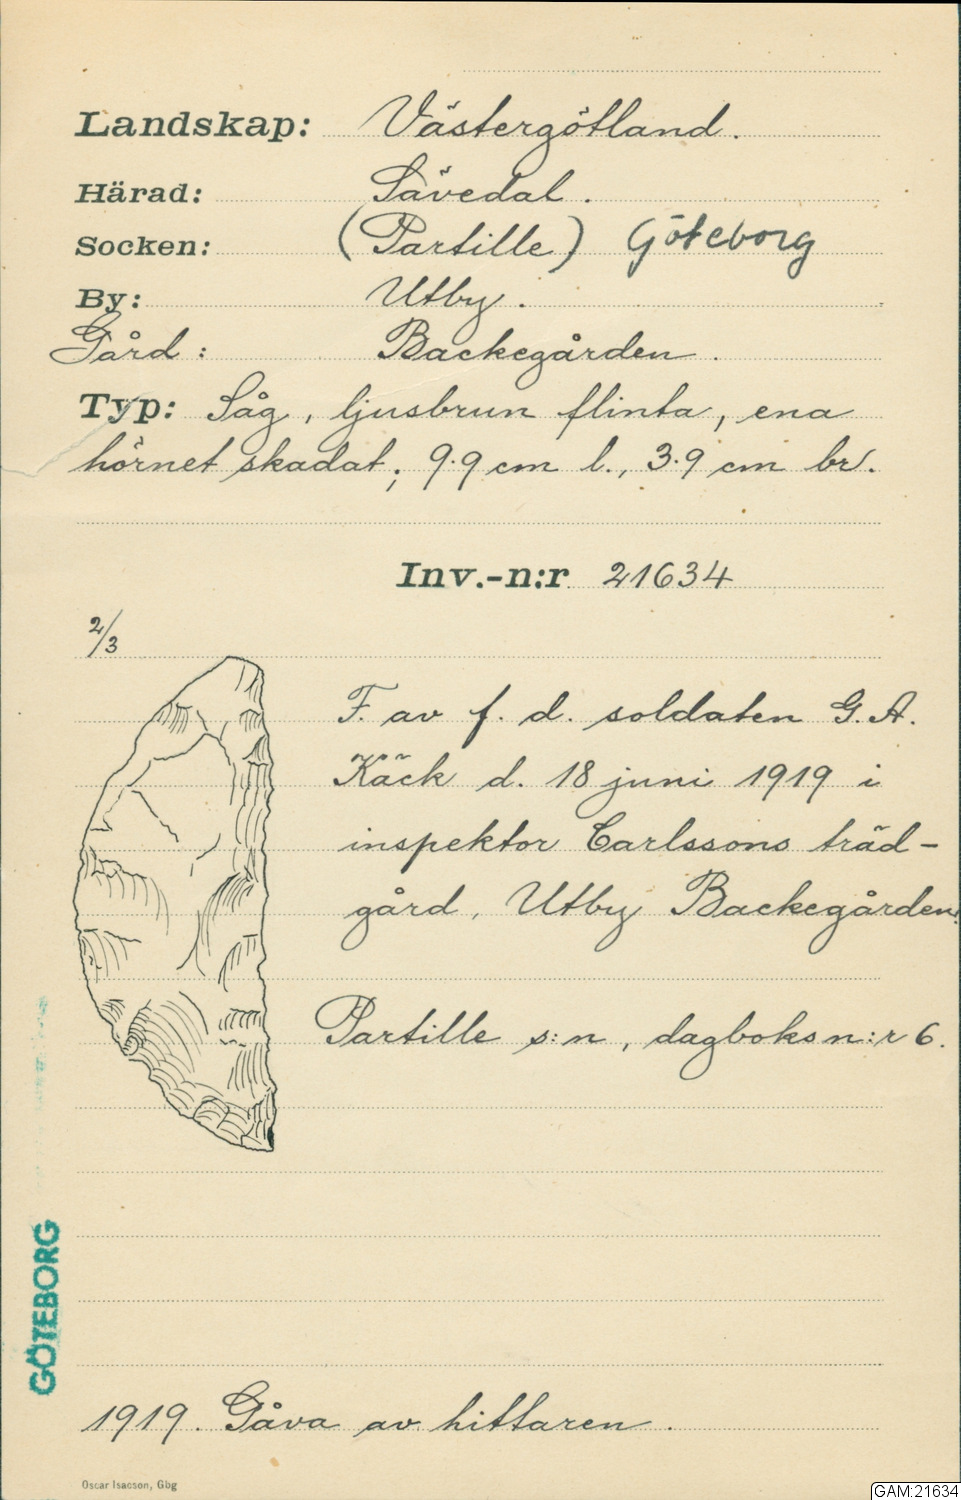 Landskap: Västergötland.
Härad: Sävedal.
Socken: (Partille) Göteborg
By: Utby.
Gård: Backegården.
Typ: Såg, ljusbrun flinta, ena
hörnet skadat; 9.9 cm l., 3.9 cm br.
Inv.-n:r 21634
2/3
F. av f. d. soldaten G. A.
Käck d. 18 juni 1919 i
inspektor Carlssons träd-
gård, Utby Backegården,
Partille s:n, dagboksn:r 6.
GÖTEBORG
1919. Gåva av hittaren.
Oscar Isacson, Gbg
GAM:21634